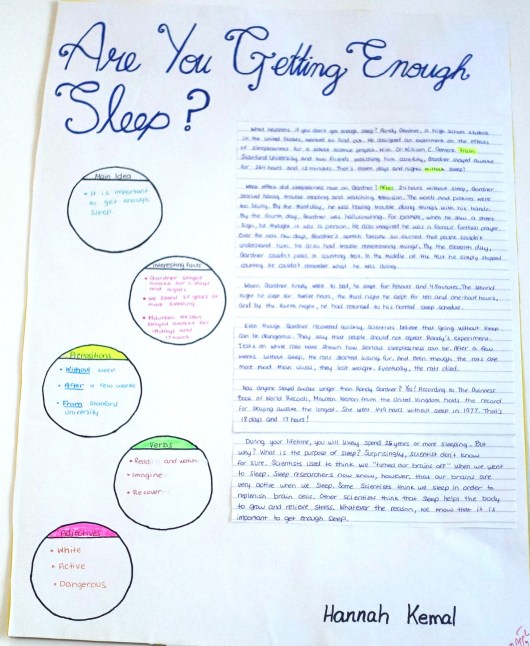 Are You Getting Enough
Sleep?
Main Idea
• It is important
to get enough
sleep
Interesting Facts
• Gardner stayed
awake for 11 days
and nights
• We spend 25 years or
more sleeping
• Maureen Weston
stayed awake for
18 days and
17 hours
Prepositions
• Without
• After a few weeks
• From Stanford
university
Verbs
• Read... and watch
• Imagine
• Recover
Adjectives
• White
• Active
• Dangerous
What happens if you don't get enough sleep? Randy Gardner, a high school student
in the United States, wanted to find out. He designed an experiment on the effects
of sleeplessness for a school science project. With Dr. William C. Dement from
Stanford University and two friends watching him carefully, Gardner stayed awake
for 264 hours and 12 minutes. That's eleven days and nights without sleep!
What effect did sleeplessness have on Gardner? After 24 hours without sleep, Gardner
started having trouble reading and watching television. The words and pictures were
too blurry. By the third day, he was having trouble doing things with his hands.
By the fourth day, Gardner was hallucinating. For example, when he saw a street
sign, he thought it was a person. He also imagined he was a famous football player.
Over the next few days, Gardner's speech became so slurred that people couldn't
understand him. He also had trouble remembering things. By the eleventh day,
Gardner couldn't pass a counting test. In the middle of the test he simply stopped
counting. He couldn't remember what he was doing.
When Gardner finally went to bed, he slept for 14 hours and 45 minutes. The second
night he slept for twelve hours, the third night he slept for ten and one-half hours,
and by the fourth night, he had returned to his normal sleep schedule.
Even though Gardner recovered quickly, scientists believe that going without sleep
can be dangerous. They say that people should not repeat Randy's experiment.
Tests on white rats have shown how serious sleeplessness can be. After a few
weeks without sleep, the rats started losing fur. And even though the rats ate
more food than usual, they lost weight. Eventually, the rats died.
Has anyone stayed awake longer than Randy Gardner? Yes! According to The Guinness
Book of World Records, Maureen Weston from the United Kingdom holds the record
for staying awake the longest. She went 449 hours without sleep in 1977. That's
18 days and 17 hours!
During your lifetime, you will likely spend 25 years or more sleeping. But
why? What is the purpose of sleep? Surprisingly, scientist don't know
for sure. Scientists used to think we "turned our brains off" when we went
to sleep. Sleep researchers now know, however, that our brains are
very active when we sleep. Some scientists think we sleep in order to
replenish brain cells. Other scientists think that sleep helps the body
to grow and relieve stress. Whatever the reason, we know that it is
important to get enough sleep.
Hannah Kemal